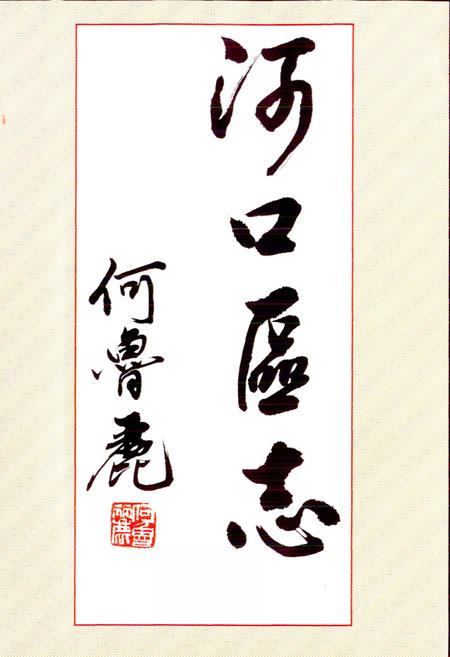 河口區志
何魯麗
何魯麗